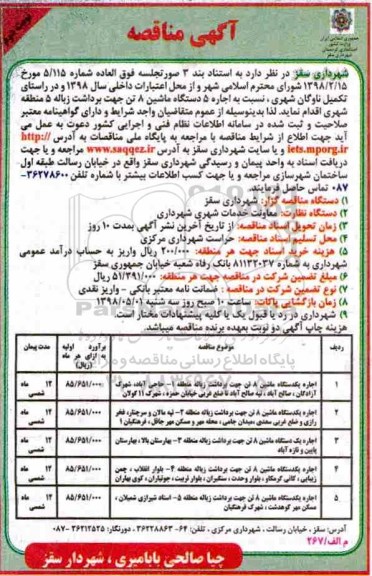 آگهی مناقصه
نوبت دوم
جمهوری اسلامی ایران
وزارت کشور
استانداری کردستان
شهرداری سقز
شهرداری سقز در نظر دارد به استناد بند ۳ صورتجلسه فوق العاده شماره ۵/۱۱۵ مورخ
۱۳۹۸/۲/۱۵ شورای محترم اسلامی شهر و از محل اعتبارات داخلی سال ۱۳۹۸ و در راستای
تکمیل ناوگان شهری ، نسبت به اجاره ۵ دستگاه ماشین ۸ تن جهت برداشت زباله ۵ منطقه
شهری اقدام نماید. لذا بدینوسیله از عموم متقاضیان واجد شرایط و دارای گواهینامه معتبر
صلاحیت و ثبت شده در سامانه اطلاعات نظام فنی و اجرایی کشور دعوت به عمل می
آید جهت اطلاع از شرایط مناقصه با مراجعه به پایگاه ملی مناقصات به آدرس http://
iets.mporg.ir و یا سایت شهرداری سقز به آدرس www.saqqez.ir مراجعه و یا جهت
دریافت اسناد به واحد پیمان و رسیدگی شهرداری سقز واقع در خیابان رسالت طبقه اول
ساختمان شهرسازی مراجعه و یا جهت کسب اطلاعات بیشتر با شماره تلفن ۳۶۲۷۸۶۰۰-
۰۸۷ تماس حاصل فرمایند.
۱) دستگاه مناقصه گزار: شهرداری سقز
۲) دستگاه نظارت: معاونت خدمات شهری شهرداری
۳) زمان تحویل اسناد مناقصه: از تاریخ آخرین نشر آگهی بمدت ۱۰ روز
۴) محل تسلیم اسناد مناقصه: حراست شهرداری مرکزی
۵) هزینه خرید اسناد جهت هر منطقه: ۲۰۰/۰۰۰ ریال واریز به حساب درآمد عمومی
شهرداری به شماره ۸۱۱۲۲۰۲۷ بانک رفاه شعبه خیابان جمهوری سقز
۶) مبلغ تضمین شرکت در مناقصه جهت هر منطقه: ۵۱/۳۹۱/۰۰۰ ریال
۷) نوع تضمین شرکت در مناقصه : ضمانت نامه معتبر بانکی - واریز نقدی
۸) زمان بازگشایی پاکات: ساعت ۱۰ صبح روز سه شنبه ۱۳۹۸/۰۵/۰۱
۹) شهرداری در رد یا قبول یک یا کلیه پیشنهادات مختار است.
هزینه چاپ آگهی دو نوبت بعهده برنده مناقصه میباشد.
ردیف موضوع مناقصه برآورد اولیه به ازای هر ماه (ریال) مدت پیمان
۱ اجاره یکدستگاه ماشین ۸ تن جهت برداشت زباله منطقه ۱- حاجی آباد، شهرک
آزادگان ، صالح آباد ، تپه صالح آباد تا ضلع غربی خیابان حمزه ، شهرک ۱۱ گولان ۸۵/۶۵۱/۰۰۰ ۱۲ ماه شمسی
۲ اجاره یکدستگاه ماشین ۸ تن جهت برداشت زباله منطقه ۲- تپه مالان و سرچنار، فخر
رازی و ضلع غربی سعدی ،میدان جامی ، محله مهر و مسکن مهر جافل ، فرهنگیان ۱ ۸۵/۶۵۱/۰۰۰ ۱۲ ماه شمسی
۳ اجاره یک دستگاه ماشین ۸ تن جهت برداشت زباله منطقه ۳- بهارستان بالا ، بهارستان
پایین و تازه آباد ۸۵/۶۵۱/۰۰۰ ۱۲ ماه شمسی
۴ اجاره یکدستگاه ماشین ۸ تن جهت برداشت زباله منطقه ۴- بلوار انقلاب ، چمن
زیبایی ، کانی کرمکاو ، بلوار وحدت ، سنگبران ، بلوار تربیت ، جوتیاران، کوی بهاران ۸۵/۶۵۱/۰۰۰ ۱۲ ماه شمسی
۵ اجاره یکدستگاه ماشین ۸ تن جهت برداشت زباله منطقه ۵- استاد شیرازی شمیلان ،
مسکن مهر کوهدشت ، شهرک فرهنگیان ۸۵/۶۵۱/۰۰۰ ۱۲ ماه شمسی
آدرس: سقز ، خیابان رسالت ، شهرداری مرکزی ، تلفن: ۶۴- ۳۶۲۲۸۸۶۳ ، دورنگار: ۳۶۲۱۲۵۲۵ -۰۸۷
م الف/۲۶۷
چیا صالحی بابامیری ، شهردار سقز
پایگاه اطلاع رسانی مناقصه و مزایده